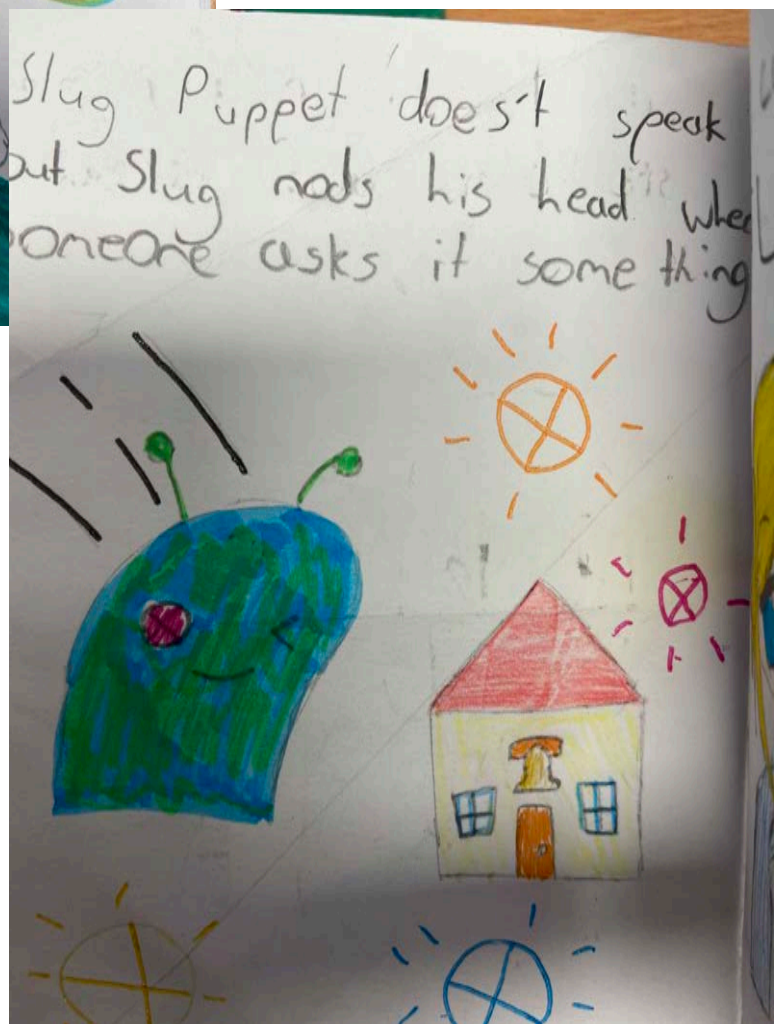 Slug Puppet does't speak
but Slug nods his head when
someone asks it some thing